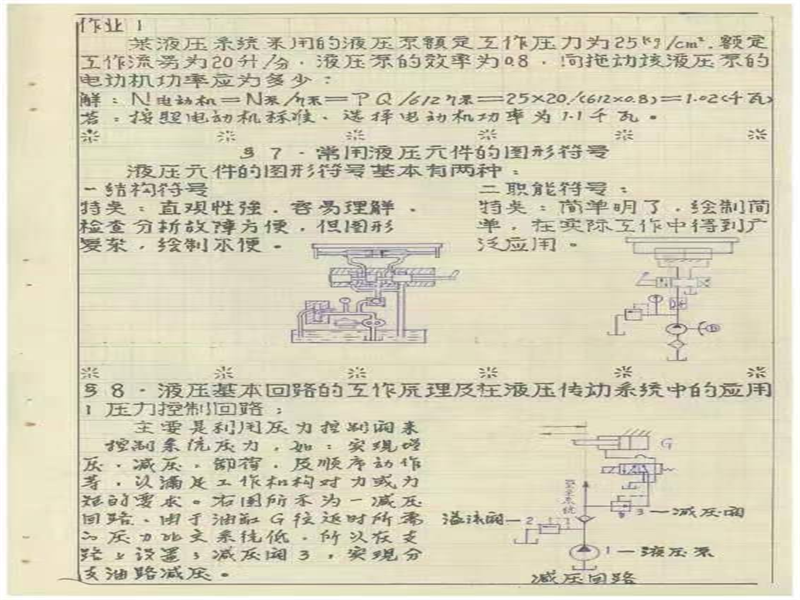 作业1
某液压系统采用的液压泵额定工作压力为25kg/cm².额定
工作流量为20升/分.液压泵的效率为0.8.问拖动该液压泵的
电动机功率应为多少:
解:N电动机=N泵/η泵=PQ/612η泵=25×20/(612×0.8)=1.02(千瓦)
答:按照电动机标准、选择电动机功率为1.1千瓦。
§7·常用液压元件的图形符号
液压元件的图形符号基本有两种:
一结构符号
特点:直观性強.容易理解.
检查分析故障方便,但图形
复杂,绘制不便。
二职能符号:
特点:简单明了,绘制简
单,在实际工作中得到广
泛应用。
§8·液压基本回路的工作原理及在液压传动系统中的应用
1 压力控制回路:
主要是利用压力控制阀来
控制系统压力,如:实现增
压、减压、卸荷、及顺序动作
等,以满足工作机构对力或力
矩的要求。右图所示为一减压
回路、由于油缸G往返时所需
的压力比主系统低.所以在支
路上设置了减压阀3,实现分
支油路减压。
G
至主系统
溢流阀—2
3—减压阀
1—液压泵
减压回路